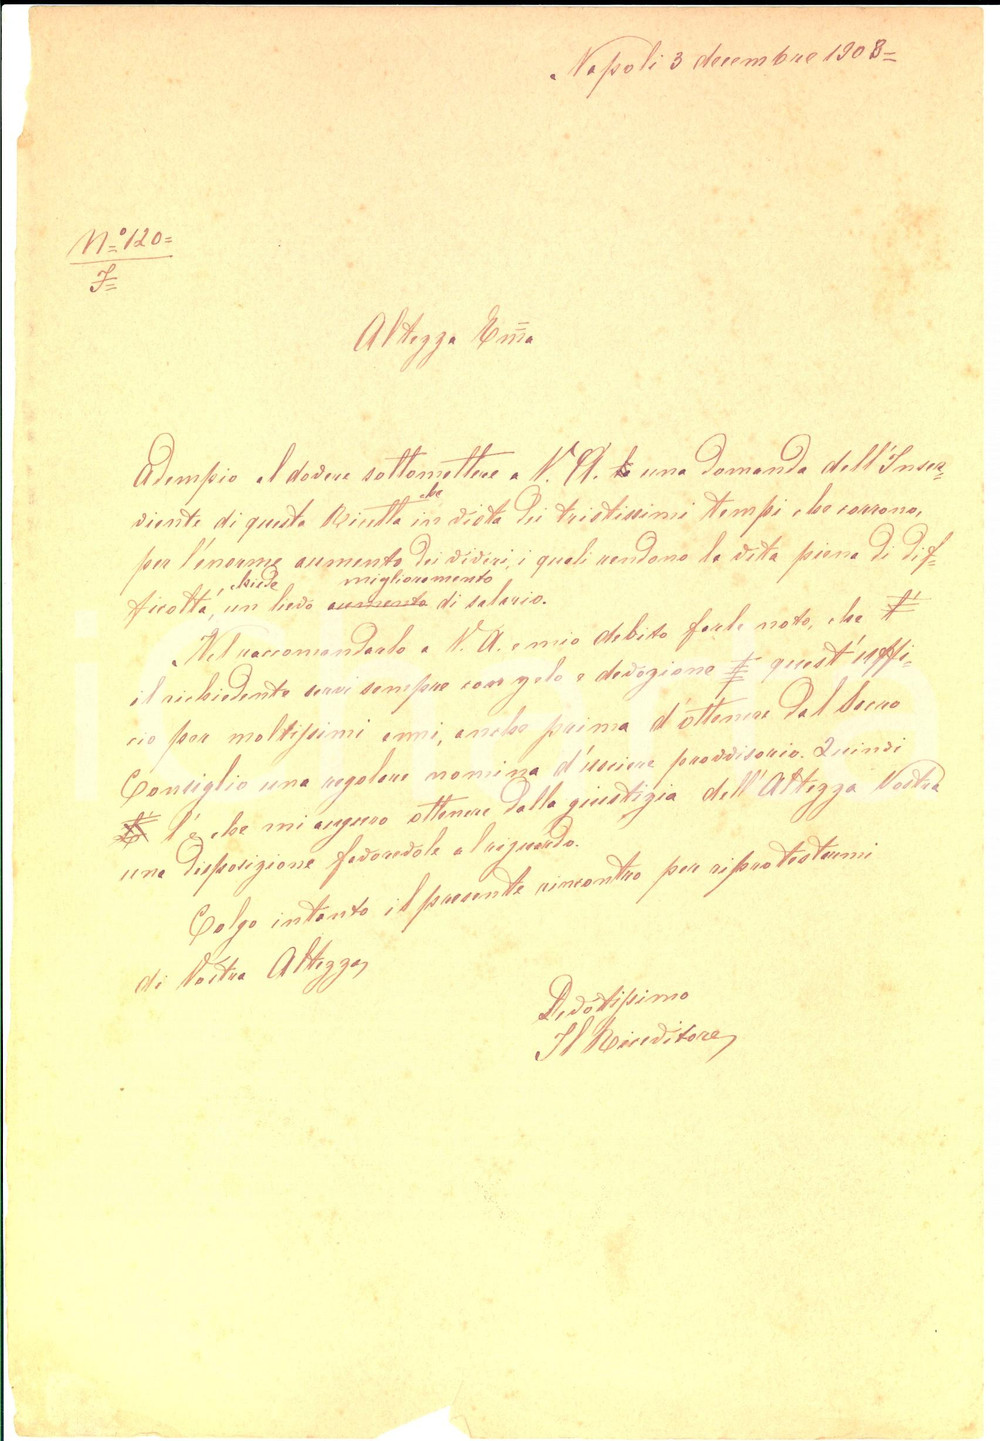 Napoli 3 decembre 1908=
N=º 120=
I=
Altezza Em̅a
Adempio al dovere sottomettere a V. A. una domanda dell'Inser=
viente di questa Ricetta che in vista dei tristissimi tempi che corrono,
per l'enorme aumento dei viveri, i quali rendono la vita piena di dif=
ficoltà, chiede un lieve aumento miglioramento di salario.
Nel raccomandarlo a V. A. è mio debito farle noto, che
il richiedente servì sempre con zelo e devozione quest'uffi=
cio per moltissimi anni, anche prima d'ottenere dal Sacro
Consiglio una regolare nomina d'usciere provvisorio. Quindi
l'è che mi auguro ottenere dalla giustizia dell'Altezza Vostra
una disposizione favorevole al riguardo.
Colgo intanto il presente rincontro per riprotestarmi
di Vostra Altezza,
Devotissimo
Il Ricevitore,